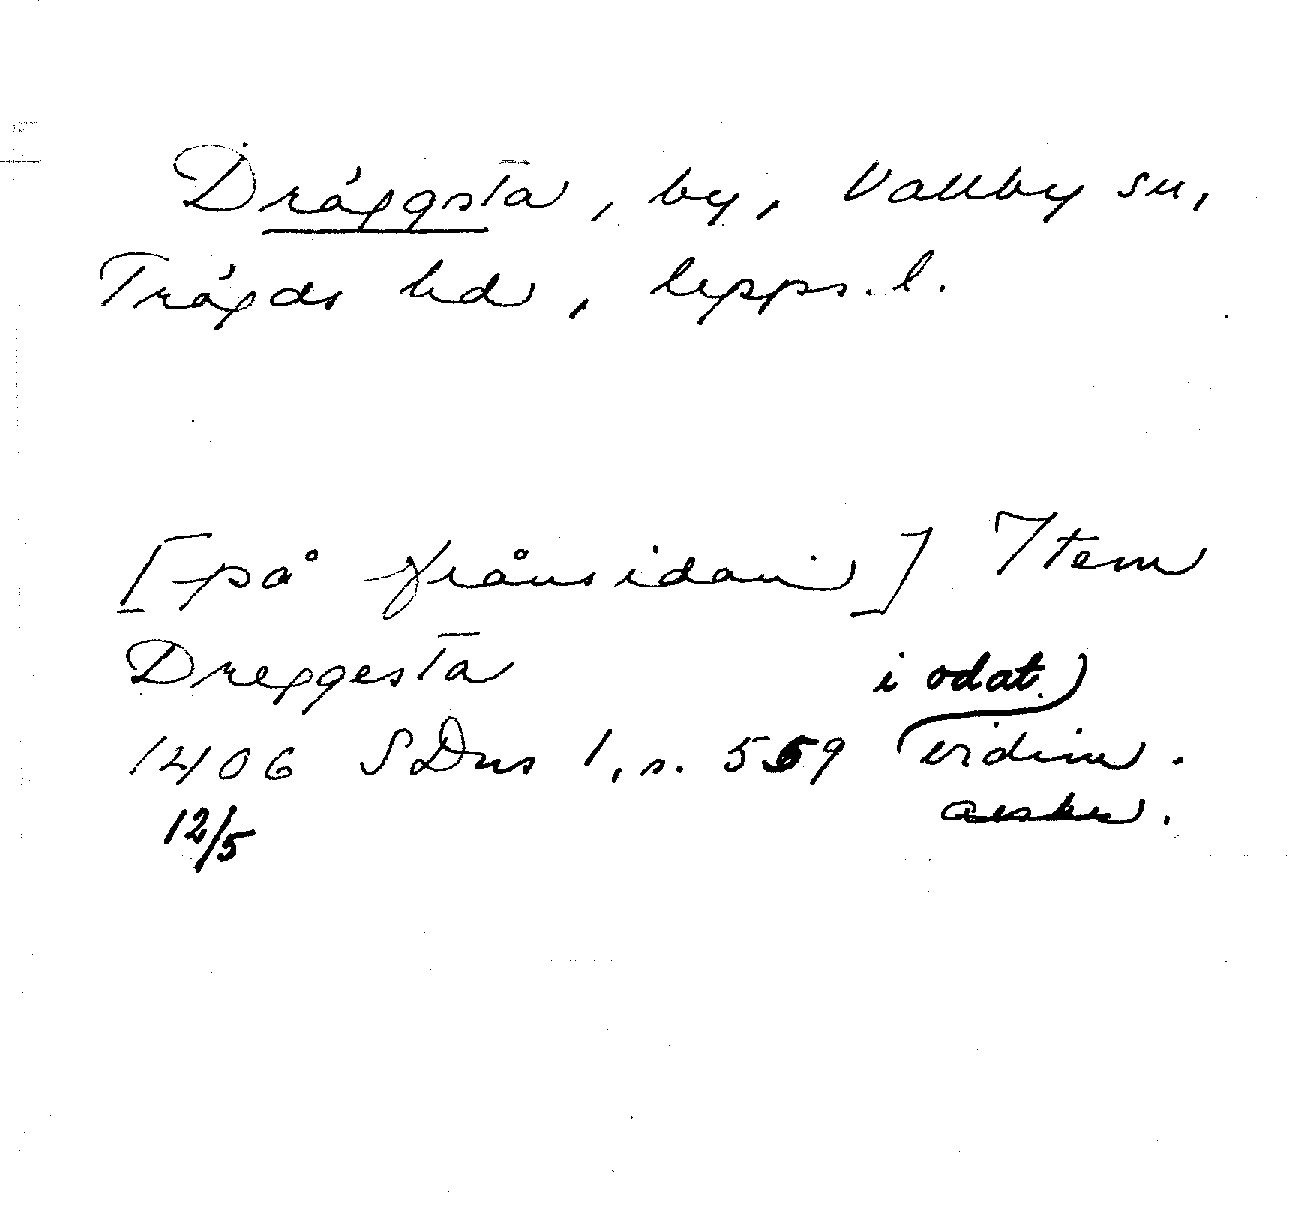 Dräggsta, by, Vallby sn,
Trögds hd, Upps. l.
[på frånsidan] Item
Dreggesta
i odat.
1406 SDns 1, s. 559 vidim.
12/5